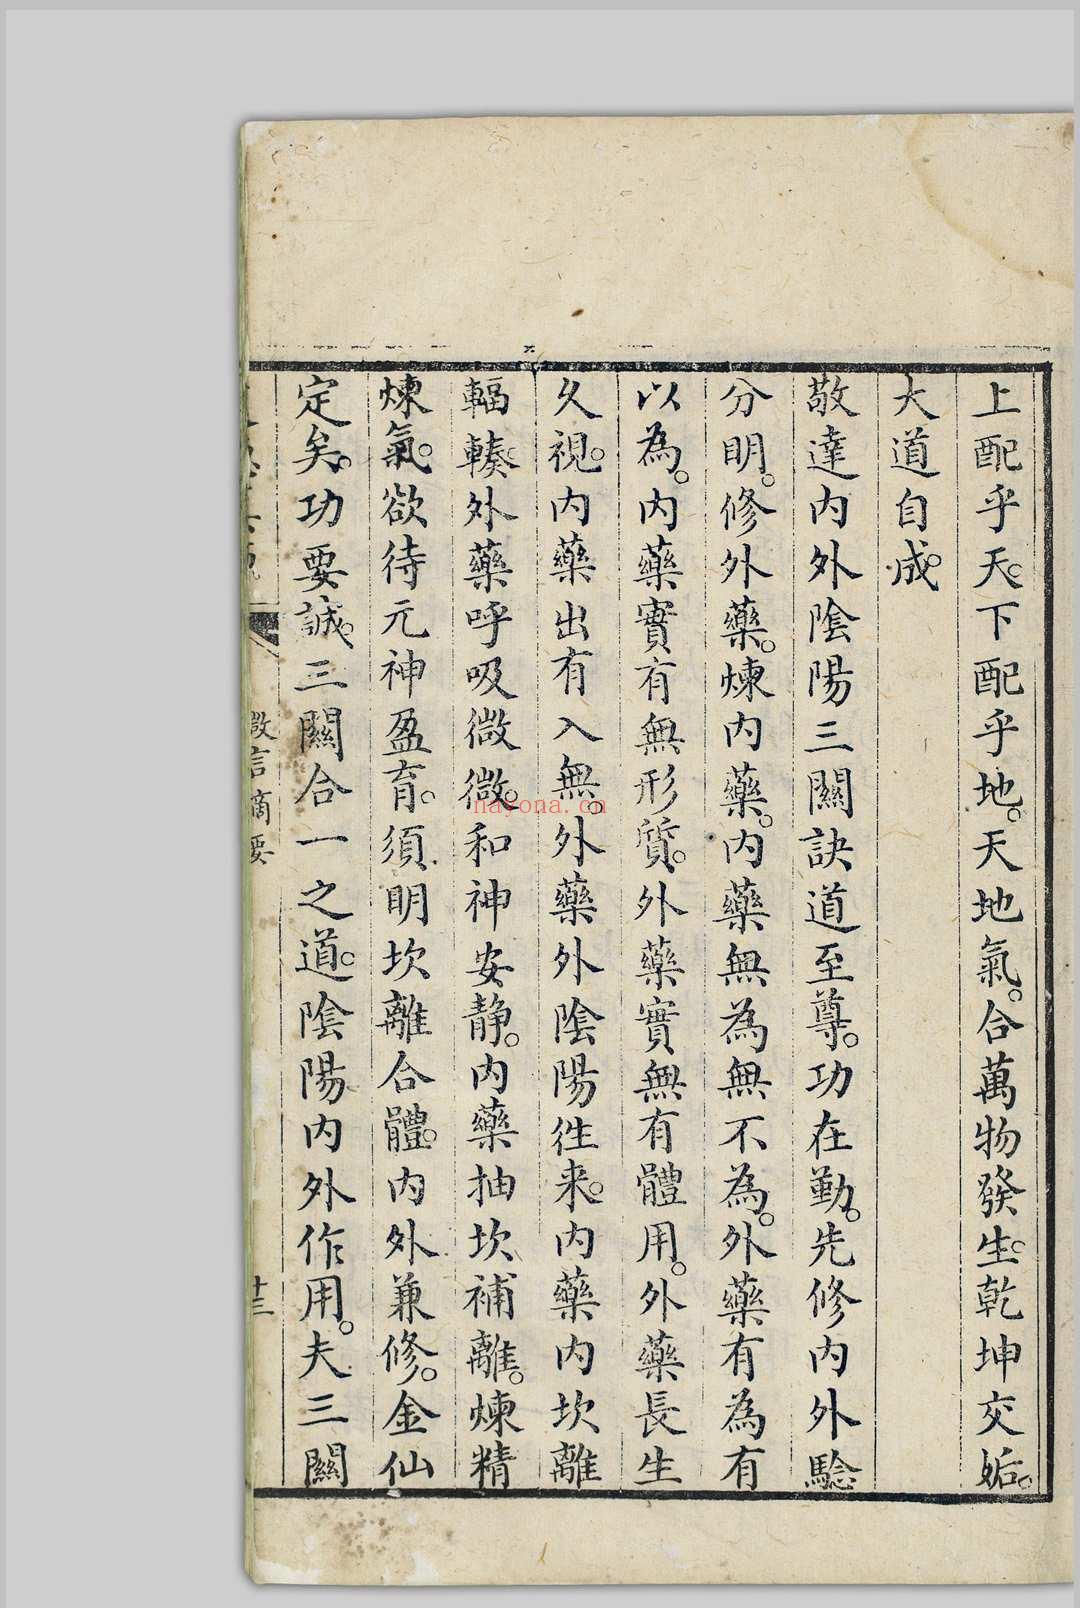 上配乎天。下配乎地。天地氣。合萬物發生。乾坤交姤。
大道自成。
敬達内外陰陽三關訣道至尊。功在勤。先修内外驗
分明。修外藥。煉内藥。内藥無為無不為。外藥有為有
以為。内藥實有無形質。外藥實無有體用。外藥長生
久視。内藥出有入無。外藥外陰陽徃来。内藥内坎離
輻輳。外藥呼吸微微。和神安静。内藥抽坎補離。煉精
煉氣。欲待元神盈育。須明坎離合體。内外兼修。金仙
定矣。功要誠。三關合一之道。陰陽内外作用。夫三關
微言摘要
十三
nayona.cn